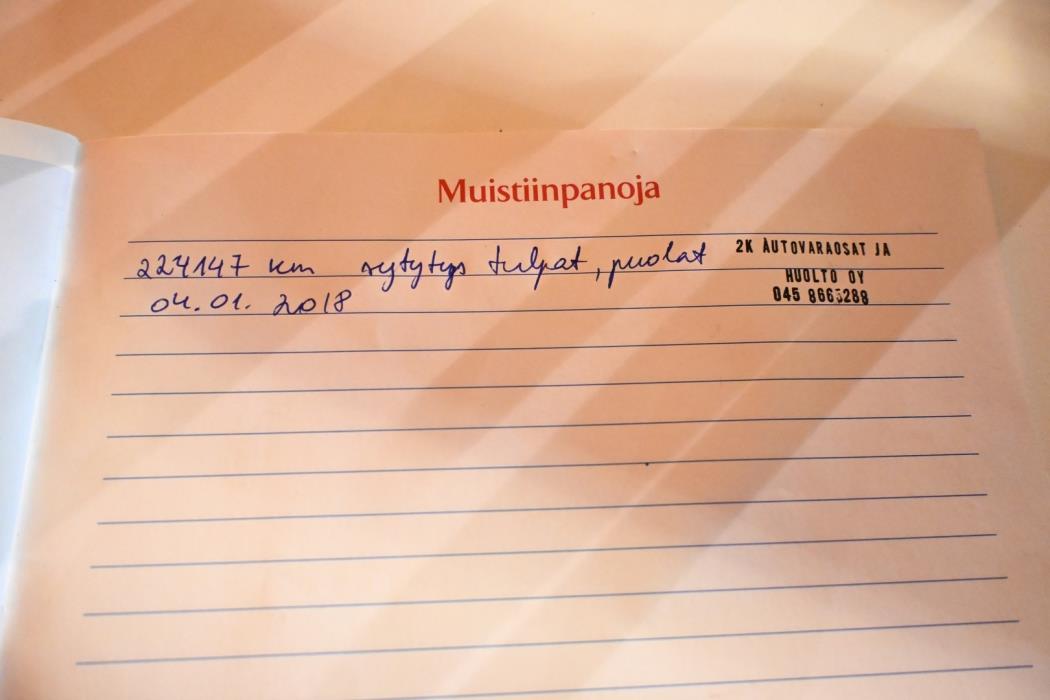 Muistiinpanoja
224147 km sytytys tulpat, puolat
04.01. 2018
2K AUTOVARAOSAT JA
HUOLTO OY
045 8665288